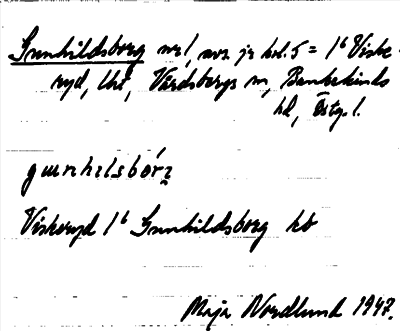 Gunhildsborg nr 1, avs. jr kvl. 5 = 1⁶ Viske-
ryd, Uht, Vårdsbergs sn, Bankekinds
hd, Östg. l.
gunhilsbórj
Viskeryd 1⁶ Gunhildsborg kb
Maja Nordlund 1947.